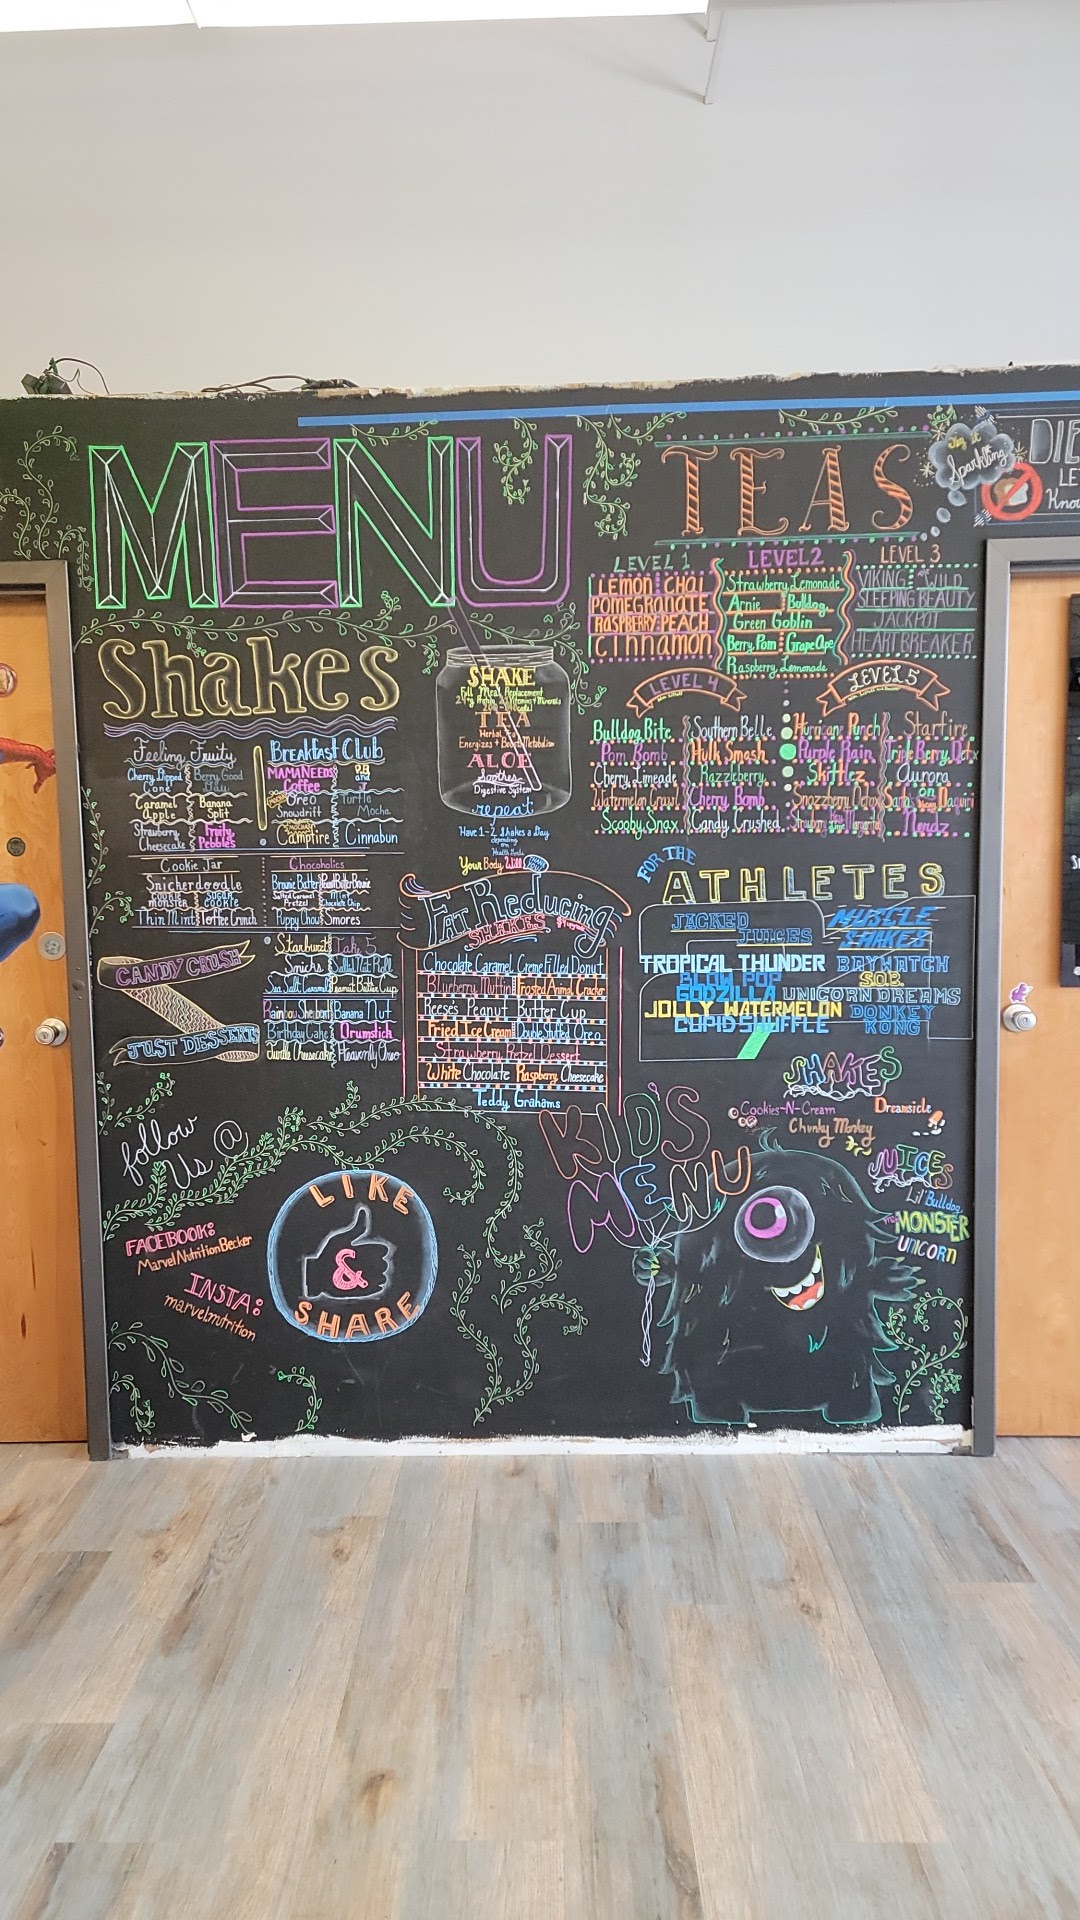 MENU
Shakes
Feeling Fruity
Cherry Dipped Cone
Berry Good Day
Caramel Apple
Banana Split
Strawberry Cheesecake
Fruity Pebbles
Breakfast Club
MAMANEEDS Coffee
PB and J
Oreo Snowdrift
Turtle Mocha
Campfire
Cinnabun
Cookie Jar
Snickerdoodle
monster
SUGAR COOKIE
Thin Mint
Toffee Crunch
Chocoholics
Brownie Batter
Peanut Butter Brownie
Salted Caramel Pretzel
Mint Chocolate Chip
Puppy Chow
Smores
CANDY CRUSH
Starburst
Take 5
Snickers
Salted Nut Roll
Sea Salt Caramel
Peanut Butter Cup
JUST DESSERTS
Rainbow Sherbert
Banana Nut
Birthday Cake
Drumstick
Turtle Cheesecake
Heavenly Oreo
SHAKE
Full Meal Replacement
TEA
Herbal Tea
Energizes + Boosts Metabolism
ALOE
Soothes
Digestive System
repeat
Have 1-2 Shakes a Day
depending
on
Health Goals
Your Body Will THANK YOU
Fat Reducing
SHAKES
Chocolate Caramel Creme Filled Donut
Blueberry Muffin
Frosted Animal Cracker
Reese's Peanut Butter Cup
Fried Ice Cream
Double Stuffed Oreo
Strawberry Pretzel Dessert
White Chocolate Raspberry Cheesecake
Teddy Grahams
TEAS
Try it
Sparkling
LEVEL 1
LEMON CHAI
POMEGRANATE
RASPBERRY PEACH
Cinnamon
LEVEL 2
Strawberry Lemonade
Arnie
Bulldog
Green Goblin
Berry Pom
Grape Ape
Raspberry Lemonade
LEVEL 3
VIKING
WILD
SLEEPING BEAUTY
JACKPOT
HEARTBREAKER
LEVEL 4
Bulldog Bite
Southern Belle
Pom Bomb
Hulk Smash
Cherry Limeade
Razzleberry
Watermelon Crawl
Cherry Bomb
Scooby Snax
Candy Crushed
LEVEL 5
Hurricane Punch
Starfire
Purple Rain
Triple Berry Detox
Skittlez
Aurora
Snozzberry Detox
Nerdz
FOR THE
ATHLETES
JACKED
JUICES
TROPICAL THUNDER
BLOW POP
GODZILLA
JOLLY WATERMELON
CUPID SHUFFLE
MUSCLE
SHAKES
BAYWATCH
S.O.B.
UNICORN DREAMS
DONKEY
KONG
KID'S
MENU
SHAKES
Cookies-N-Cream
Dreamsicle
Chunky Monkey
JUICES
Lil' Bulldog
MONSTER
UNICORN
follow
Us @
FACEBOOK:
MarvelNutritionBecker
INSTA:
marvelnutrition
LIKE
&
SHARE